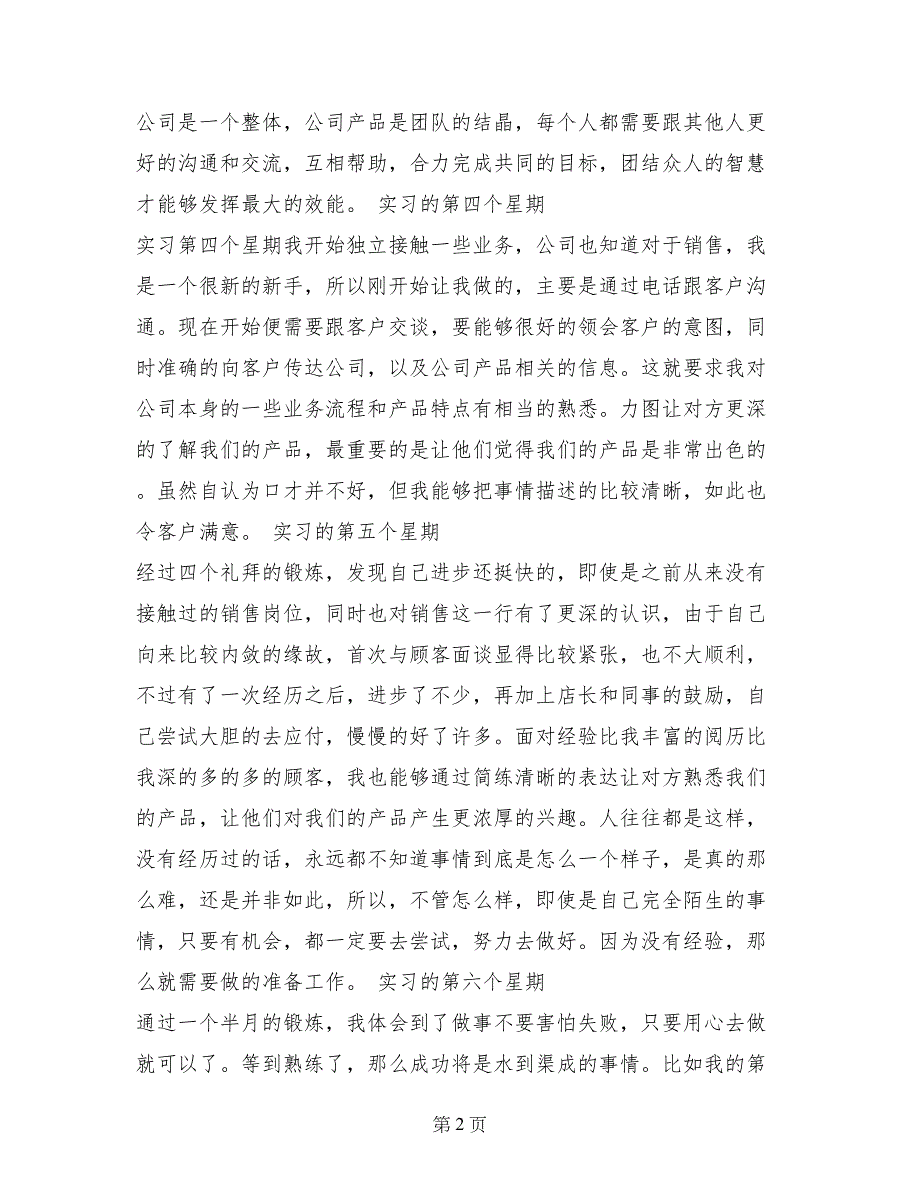 公司是一个整体，公司产品是团队的结晶，每个人都需要跟其他人更
好的沟通和交流，互相帮助，合力完成共同的目标，团结众人的智慧
才能够发挥最大的效能。 实习的第四个星期
实习第四个星期我开始独立接触一些业务，公司也知道对于销售，我
是一个很新的新手，所以刚开始让我做的，主要是通过电话跟客户沟
通。现在开始便需要跟客户交谈，要能够很好的领会客户的意图，同
时准确的向客户传达公司，以及公司产品相关的信息。这就要求我对
公司本身的一些业务流程和产品特点有相当的熟悉。力图让对方更深
的了解我们的产品，最重要的是让他们觉得我们的产品是非常出色的
。虽然自认为口才并不好，但我能够把事情描述的比较清晰，如此也
令客户满意。 实习的第五个星期
经过四个礼拜的锻炼，发现自己进步还挺快的，即使是之前从来没有
接触过的销售岗位，同时也对销售这一行有了更深的认识，由于自己
向来比较内敛的缘故，首次与顾客面谈显得比较紧张，也不大顺利，
不过有了一次经历之后，进步了不少，再加上店长和同事的鼓励，自
己尝试大胆的去应付，慢慢的好了许多。面对经验比我丰富的阅历比
我深的多的多的顾客，我也能够通过简练清晰的表达让对方熟悉我们
的产品，让他们对我们的产品产生更浓厚的兴趣。人往往都是这样，
没有经历过的话，永远都不知道事情到底是怎么一个样子，是真的那
么难，还是并非如此，所以，不管怎么样，即使是自己完全陌生的事
情，只要有机会，都一定要去尝试，努力去做好。因为没有经验，那
么就需要做的准备工作。 实习的第六个星期
通过一个半月的锻炼，我体会到了做事不要害怕失败，只要用心去做
就可以了。等到熟练了，那么成功将是水到渠成的事情。比如我的第
第 2 页